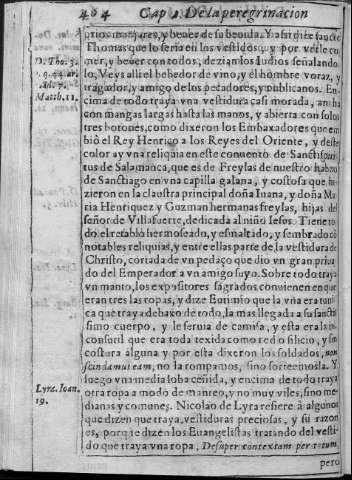 404 Cap 1. De la peregrinacion
prios manjares, y beuer de su beuida. Y assi dize sancto
Thomas que lo seria en los vestidos: y por verle co-
D. Tho. 3. mer, y beuer con todos, dezian los Iudios señalando
lo, Veys alli el bebedor de vino, y el hombre voraz, y
tragador, y amigo de los pecadores, y publicanos. En
Matth. 11. cima de todo traya vna vestidura casi morada, ancha
con mangas largas hasta las manos, y abierta con solos
tres botones, como dixeron los Embaxadores que em
bió el Rey Henrico a los Reyes del Oriente, y deste
color ay vna reliquia en este conuento de Sanctispiri
tus de Salamanca, que es de Freylas de nuestro habito
de Sanctiago en vna capilla galana, y costosa que hi-
zieron en la claustra principal doña Iuana, y doña Ma
ria Henriquez y Guzman hermanas freylas, hijas del
señor de Villafuerte, dedicada al niño Iesus. Tiene to
do el retablo hermoseado, y esmaltado, y sembrado cõ
notables reliquias, y entre ellas parte de la vestidura de
Christo, cortada de vn pedaço que dio vn gran priua
do del Emperador a vn amigo suyo. Sobre todo traya
vn manto, los expositores sagrados conuienen en que
eran tres las ropas, y dize Eutimio que la vña era tuni
ca que traya debaxo de todo, la mas llegada a su sancti
simo cuerpo, y le seruia de camisa, y esta era la in
consutil que era toda texida como red o silicio, y sin
costura alguna y por esta dixeron los soldados, non
scindamus eam, no la rompamos, sino sorteemosla. Y
Lyra. Ioan. luego vna media loba ceñida, y encima de todo traya
19. otra ropa a modo de manteo, y no muy viles, sino me
dianas y comunes. Nicolao de Lyra refiere a algunos
que dizen que traya, vestiduras preciosas, y su razon
es, porque dizen los Euangelistas tratando del vesti-
do que traya vna ropa, Desuper contextam per totum,
pero